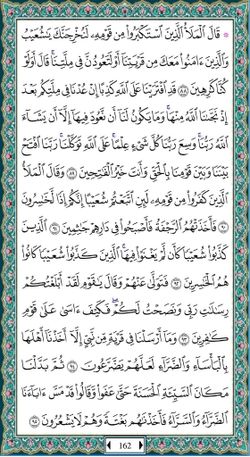 ۞ قَالَ ٱلْمَلَأُ ٱلَّذِينَ ٱسْتَكْبَرُوا۟ مِن قَوْمِهِۦ لَنُخْرِجَنَّكَ يَٰشُعَيْبُ
وَٱلَّذِينَ ءَامَنُوا۟ مَعَكَ مِن قَرْيَتِنَآ أَوْ لَتَعُودُنَّ فِى مِلَّتِنَا ۚ قَالَ أَوَلَوْ
كُنَّا كَٰرِهِينَ ٨٨ قَدِ ٱفْتَرَيْنَا عَلَى ٱللَّهِ كَذِبًا إِنْ عُدْنَا فِى مِلَّتِكُم بَعْدَ
إِذْ نَجَّىٰنَا ٱللَّهُ مِنْهَا ۚ وَمَا يَكُونُ لَنَآ أَن نَّعُودَ فِيهَآ إِلَّآ أَن يَشَآءَ
ٱللَّهُ رَبُّنَا ۚ وَسِعَ رَبُّنَا كُلَّ شَىْءٍ عِلْمًا ۚ عَلَى ٱللَّهِ تَوَكَّلْنَا ۚ رَبَّنَا ٱفْتَحْ
بَيْنَنَا وَبَيْنَ قَوْمِنَا بِٱلْحَقِّ وَأَنتَ خَيْرُ ٱلْفَٰتِحِينَ ٨٩ وَقَالَ ٱلْمَلَأُ
ٱلَّذِينَ كَفَرُوا۟ مِن قَوْمِهِۦ لَئِنِ ٱتَّبَعْتُمْ شُعَيْبًا إِنَّكُمْ إِذًا لَّخَٰسِرُونَ
٩٠ فَأَخَذَتْهُمُ ٱلرَّجْفَةُ فَأَصْبَحُوا۟ فِى دَارِهِمْ جَٰثِمِينَ ٩١ ٱلَّذِينَ
كَذَّبُوا۟ شُعَيْبًا كَأَن لَّمْ يَغْنَوْا۟ فِيهَا ۚ ٱلَّذِينَ كَذَّبُوا۟ شُعَيْبًا كَانُوا۟
هُمُ ٱلْخَٰسِرِينَ ٩٢ فَتَوَلَّىٰ عَنْهُمْ وَقَالَ يَٰقَوْمِ لَقَدْ أَبْلَغْتُكُمْ
رِسَٰلَٰتِ رَبِّى وَنَصَحْتُ لَكُمْ ۖ فَكَيْفَ ءَاسَىٰ عَلَىٰ قَوْمٍ
كَٰفِرِينَ ٩٣ وَمَآ أَرْسَلْنَا فِى قَرْيَةٍ مِّن نَّبِىٍّ إِلَّآ أَخَذْنَآ أَهْلَهَا
بِٱلْبَأْسَآءِ وَٱلضَّرَّآءِ لَعَلَّهُمْ يَضَّرَّعُونَ ٩٤ ثُمَّ بَدَّلْنَا
مَكَانَ ٱلسَّيِّئَةِ ٱلْحَسَنَةَ حَتَّىٰ عَفَوا۟ وَّقَالُوا۟ قَدْ مَسَّ ءَابَآءَنَا
ٱلضَّرَّآءُ وَٱلسَّرَّآءُ فَأَخَذْنَٰهُم بَغْتَةً وَهُمْ لَا يَشْعُرُونَ ٩٥
162